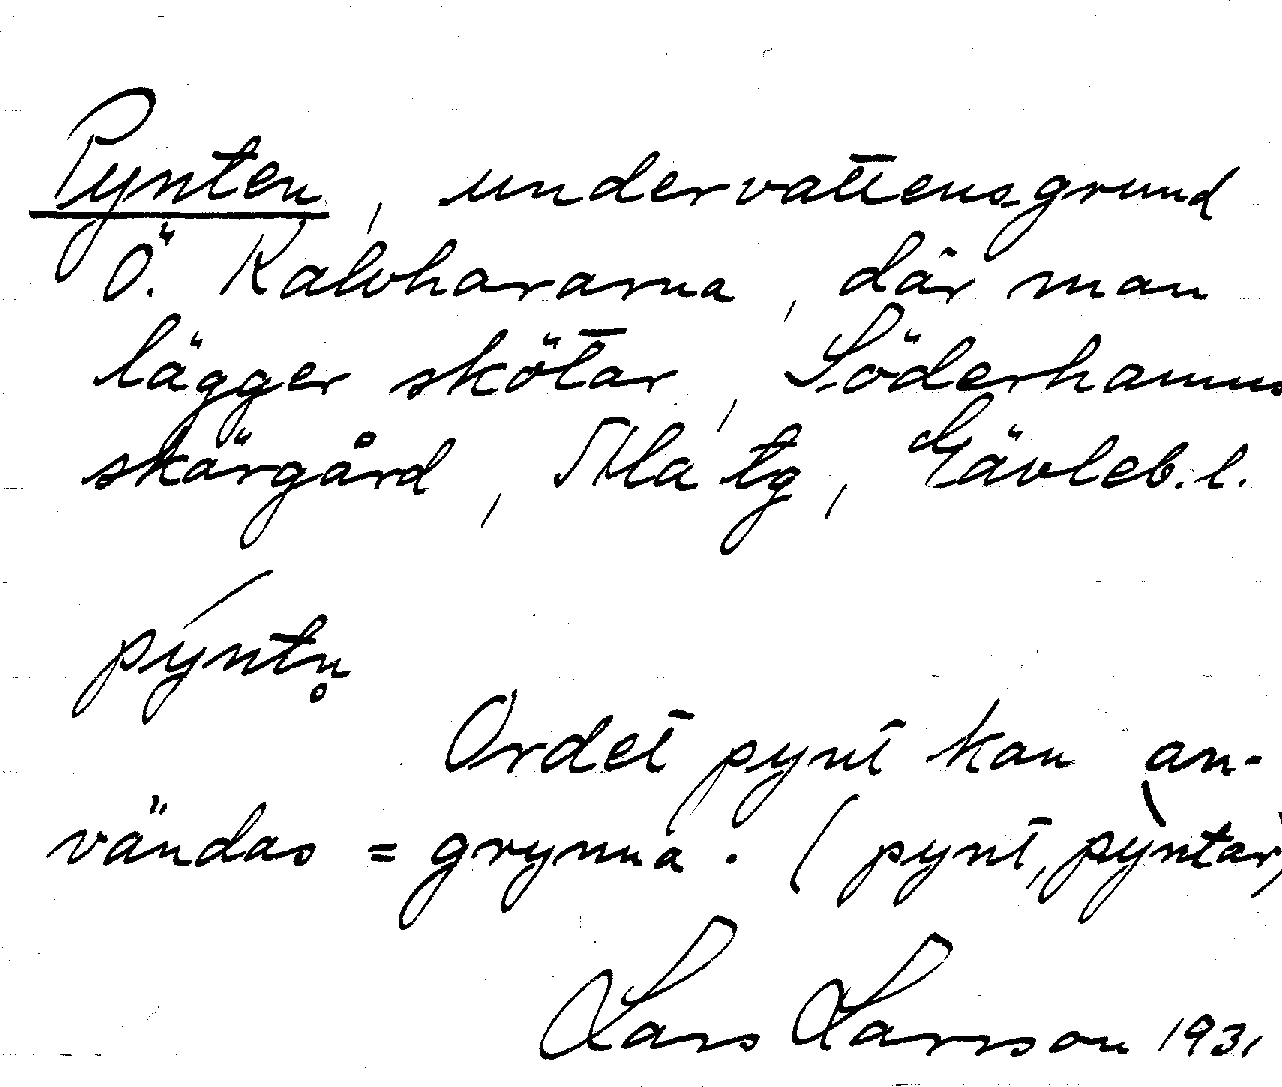 Pynten, undervattensgrund
Ö. Kalvhararna, där man
lägger skötar, Söderhamns
skärgård, Ala tg, Gävleb. l.
pýntn̥
Ordet pynt kan an-
vändas = grynna. (pynt, pỳntar)
Lars Larsson 1931